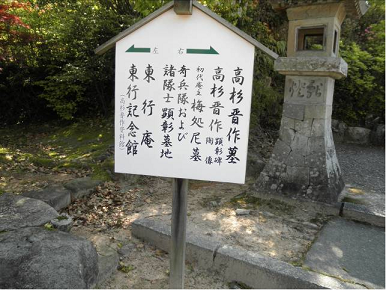 左 右
高杉晋作墓
高杉晋作 顕彰碑 陶像
初代庵主 梅処尼墓
奇兵隊および
諸隊士 顕彰墓地
東行庵
東行記念館
(高杉晋作資料館)